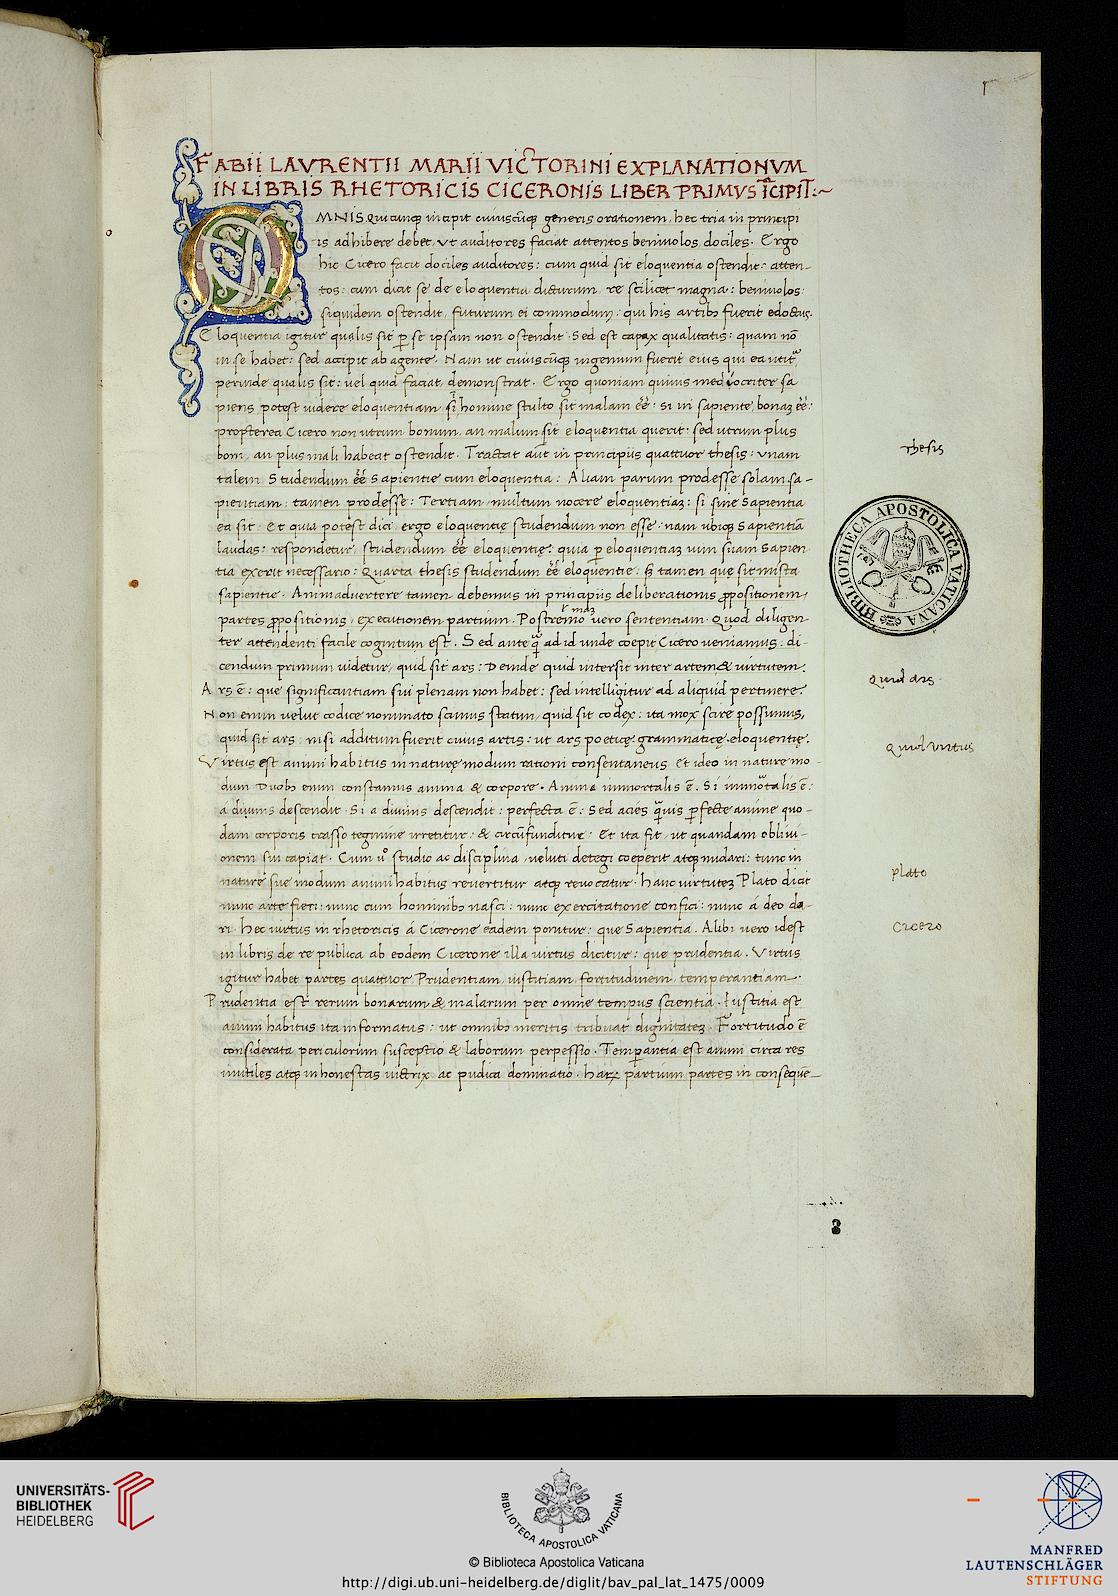 FABII LAVRENTII MARII VICTORINI EXPLANATIONVM
IN LIBRIS RHETORICIS CICERONIS LIBER PRIMVS ĪCIPIT:~
OMNIS Quicunq; incipit cuiuscūq; generis orationem, hec tria in principi
is adhibere debet, vt auditores faciat attentos beniuolos dociles. Ergo
hic Cicero facit dociles auditores: cum quid sit eloquentia ostendit: atten-
tos: cum dicit se de eloquentia dicturum, re scilicet magna: beniuolos:
siquidem ostendit, futurum ei commodum, qui his artibꝫ fuerit edoctus.
Eloquentia igitur qualis sit ꝑ se ipsam non ostendit. Sed est capax qualitatis: quam nō
in se habet: sed accipit ab agente. Nam ut cuiuscūq; ingenium fuerit eius qui ea utit᷑
perinde qualis sit: uel quid faciat, demonstrat. Ergo quoniam quiuis mediocriter sa
piens potest uidere eloquentiam, si ī homine stulto sit malam ēē: si in sapiente, bonaꝫ ēē:
propterea Cicero non utrum bonum, an malum sit eloquentia querit: sed utrum plus
boni, an plus mali habeat ostendit. Tractat aūt in principiis quattuor thesis: vnam
talem, Studendum ēē Sapientie cum eloquentia: Aliam parum prodesse solam sa-
pientiam, tamen prodesse: Tertiam, multum nocere eloquentiaꝫ: si sine Sapientia
ea sit. Et quia potest dici, ergo eloquentię studendum non esse, nam ubiq; Sapientiā
laudas: respondetur, studendum ēē eloquentię: quia ꝑ eloquentiaꝫ uim suam Sapien
tia exerit necessario: Quarta thesis studendum ēē eloquentie, sꝫ tamen que sit mista
sapientie. Animaduertere tamen debemus in principiis deliberationis ꝓpositionem,
partes ꝓpositionis, executionem partium. Postremo uero sententiam. Quod diligen-
ter attendenti facile cognitum est. Sed ante q̄ ad id unde coepit Cicero ueniamus, di-
cendum primum uidetur, quid sit ars: Deinde quid intersit inter artem & uirtutem.
Ars ē: que significantiam sui plenam non habet: sed intelligitur ad aliquid pertinere.
Non enim uelut codice nominato scimus statim, quid sit codex: ita mox scire possumus,
quid sit ars, nisi additum fuerit cuius artis: ut ars poeticę, grammaticę, eloquentię.
Virtus est animi habitus in naturę modum rationi consentaneus. Et ideo in nature mo-
dum Duobꝫ enim constamus anima & corpore. Anima immortalis ē. Si immortalis ē:
a diuinis descendit. Si a diuinis descendit: perfecta ē: Sed acies q̄uis ꝑfecte anime quo-
dam corporis crasso tegmine irretitur: & circūfunditur: Et ita fit, ut quandam obliui-
onem sui capiat. Cum uº studio ac disciplina, ueluti detegi coeperit atq; nudari: tunc in
nature sue modum animi habitus reuertitur atq; reuocatur. Hanc uirtuteꝫ Plato dicit
nunc arte fieri: nunc cum hominibꝫ nasci: nunc exercitatione confici: nunc á deo da-
ri. Hec uirtus in rhetoricis á Cicerone eadem ponitur: que Sapientia. Alibi uero idest
in libris de re publica ab eodem Cicerone illa uirtus dicitur: que prudentia. Virtus
igitur habet partes quattuor Prudentiam, iustitiam, fortitudinem, temperantiam.
Prudentia est rerum bonarum & malarum per omne tempus scientia. Iustitia est
animi habitus ita informatus: ut omnibꝫ meritis tribuat dignitateꝫ. Fortitudo ē
considerata periculorum susceptio & laborum perpessio. Temꝑantia est animi circa res
inutiles atq; inhonestas uictrix ac pudica dominatio. Haꝝ partium partes in conseque-
Thesis
Quid ars.
Quid virtus
plato
Cicero
BIBLIOTHECA APOSTOLICA VATICANA
3
UNIVERSITÄTS-
BIBLIOTHEK
HEIDELBERG
BIBLIOTECA APOSTOLICA VATICANA
© Biblioteca Apostolica Vaticana
http://digi.ub.uni-heidelberg.de/diglit/bav_pal_lat_1475/0009
MANFRED
LAUTENSCHLÄGER
STIFTUNG